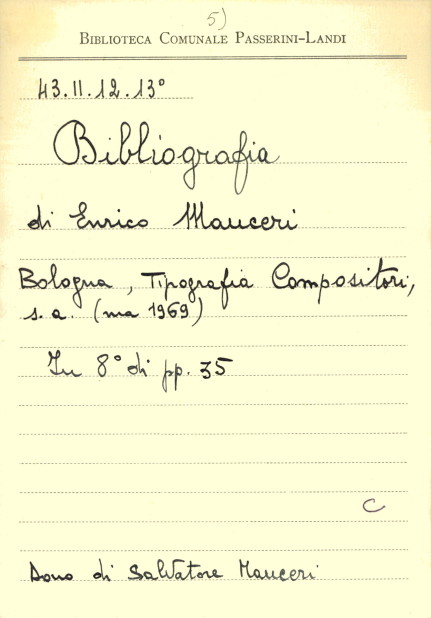 5)
BIBLIOTECA COMUNALE PASSERINI-LANDI
43.II.12.13°
Bibliografia
di Enrico Mauceri
Bologna, Tipografia Compositori,
s.a. (ma 1969)
In 8° di pp. 35
C
Dono di Salvatore Mauceri